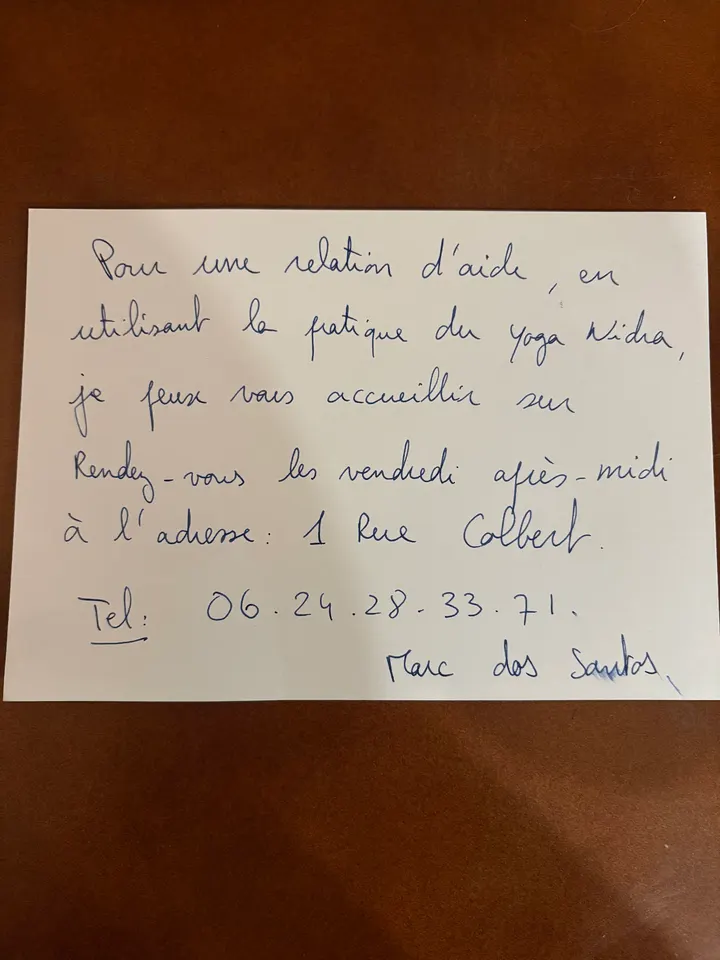 Pour une relation d'aide, en
utilisant la pratique du yoga Nidra,
je peux vous accueillir sur
Rendez-vous les vendredi après-midi
à l'adresse : 1 Rue Colbert.
Tel : 06.24.28.33.71.
Marc dos Santos